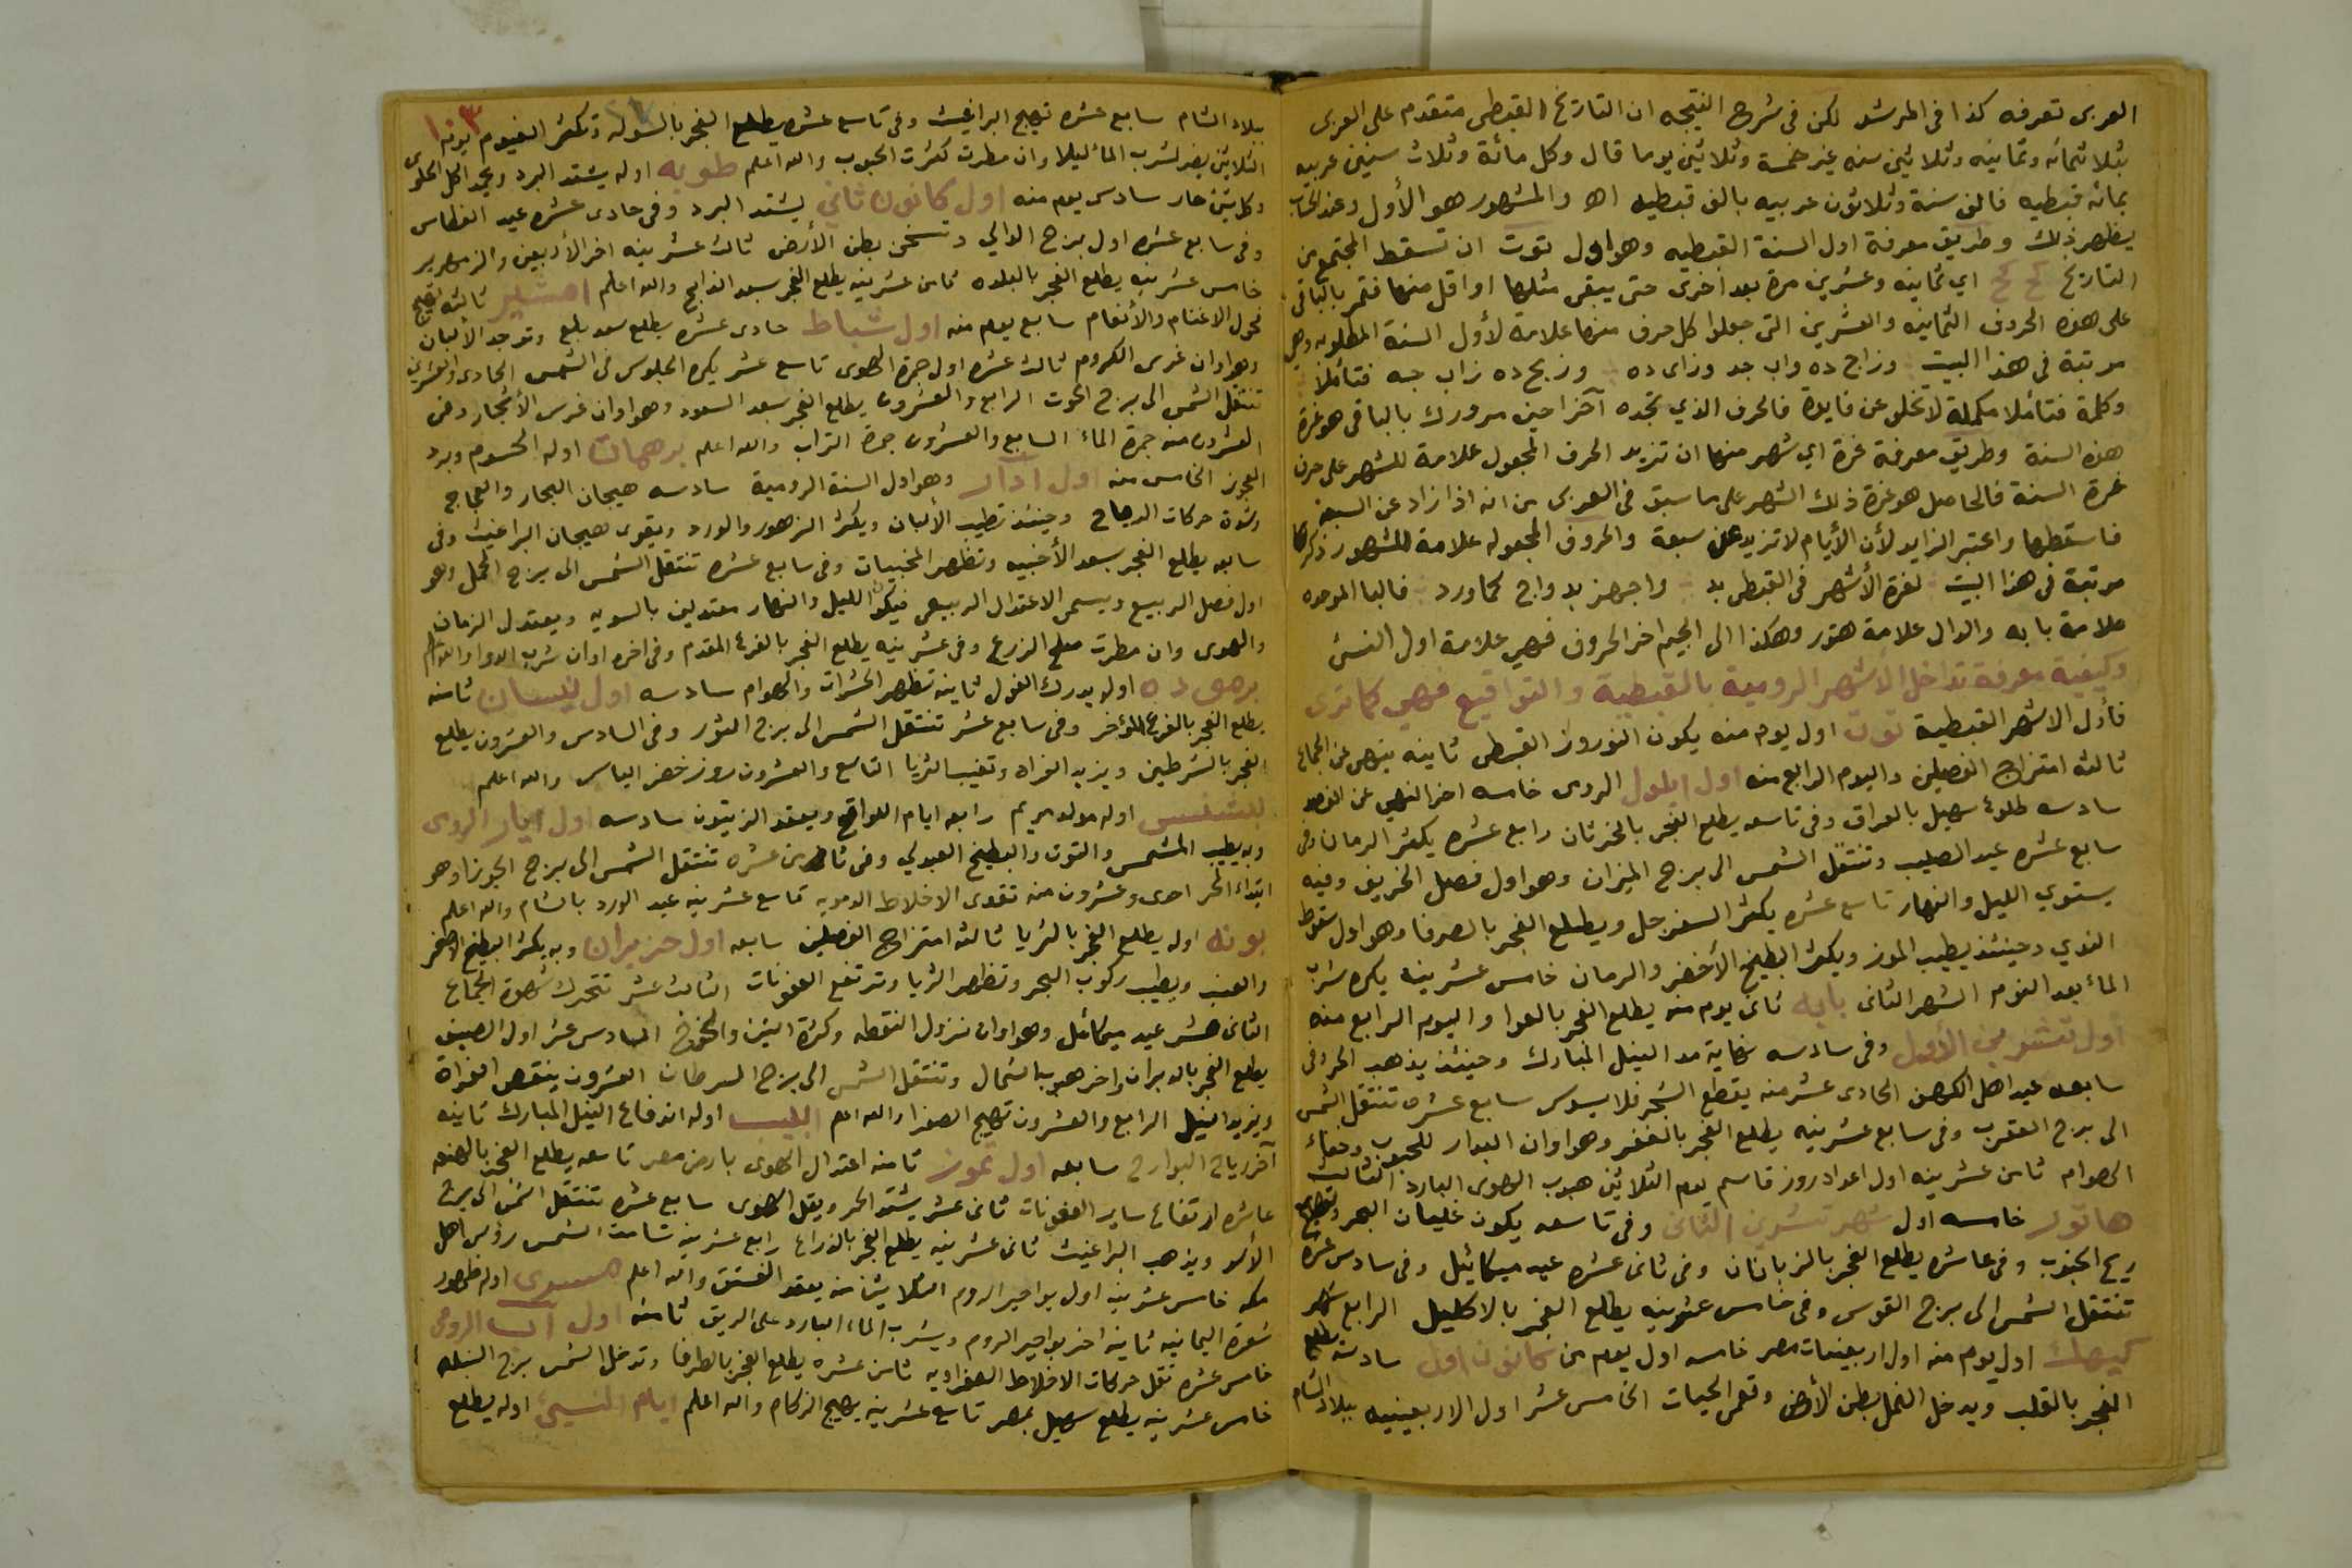 العربى تعرفه كذا فى المرشد لكن فى شرح النتيجه ان التاريخ القبطى متقدم على العربى
بثلاثمائه وثمانيه وثلاثين سنه غير خمسة وثلاثين يوما قال وكل مائة وثلاث سنين عربيه
بمائه قبطيه فالف سنة وثلاثون عربيه بالف قبطيه اه والمشهور هو الأول وعند الحساب
يظهر ذلك وطريق معرفة اول السنة القبطيه وهو اول توت ان تسقط المجتمع من
التاريخ كح كح اي ثمانيه وعشرين مرة بعد اخرى حتى يبقى مثلها او اقل منها فتمر بالباقى
على هذه الحروف الثمانيه والعشرين التى جعلوا كل حرف منها علامة لأول السنة المطلوبه وهي
مرتبة فى هذا البيت وزاج ده واب جد وزاى ده وزبج ده زاب جه فتأملا
وكلمة فتأملا مكملة لا تخلو عن فايدة فالحرف الذي تجده آخرا حين مرورك بالباقى هو غرة
هذه السنة وطريق معرفة غرة اي شهر منها ان تزيد الحرف المجعول علامة للشهر على حرف
غرة السنة فالحاصل هو غرة ذلك الشهر على ما سبق فى العربى من انه اذا زاد عن السبعة
فاسقطها واعتبر الزايد لأن الأيام لا تزيد عن سبعة والحروف المجعوله علامة للشهور ذكرها
مرتبة فى هذا البيت لغرة الأشهر فى القبطى بد واجهز بد واج كما ورد فالبا الموحده
علامة بابه والدال علامة هتور وهكذا الى الجيم اخر الحروف فهي علامة اول النسئ
وكيفية معرفة تداخل الأشهر الروميه بالقبطية والتواقيع فهي كما ترى
فأول الاشهر القبطية توت اول يوم منه يكون النوروز القبطى ثانيه ينهى عن الجماع
ثالثه امتزاج الفصلين واليوم الرابع منه اول ايلول الرومى خامسه اخر النهي عن الفصد
سادسه طلوع سهيل بالعراق وفى تاسعه يطلع الفجر بالخرثان رابع عشره يكثر الرمان وفى
سابع عشره عيد الصليب وتنتقل الشمس الى برج الميزان وهو اول فصل الخريف وفيه
يستوي الليل والنهار تاسع عشره يكثر السفرجل ويطلع الفجر بالصرفا وهو اول سقوط
الندي وحينئذ يطيب الموز ويكثر البطيخ الأخضر والرمان خامس عشرينه يكره شرب
الماء بعد النوم الشهر الثانى بابه ثانى يوم منه يطلع الفجر بالعوا واليوم الرابع منه
اول تشرين الأول وفى سادسه نهاية مد النيل المبارك وحينئذ يذهب الحر وفى
سابعه عيد اهل الكهف الحادى عشر منه يقطع الشجر فلا يسوس سابع عشره تنتقل الشمس
الى برج العقرب وفى سابع عشرينه يطلع الفجر بالغفر وهو اوان البدار للحبوب وخفاء
الهوام ثامن عشرينه اول اعداد روز قاسم يوم الثلاثين هبوب الهوى البارد الثالث
هاتور خامسه اول شهر تشرين الثانى وفى تاسعه يكون غليان البحر وتهيج
ريح الجنوب وفى عاشره يطلع الفجر بالزبانان وفى ثانى عشره عيد ميكائيل وفى سادس عشره
تنتقل الشمس الى برج القوس وفى خامس عشرينه يطلع الفجر بالاكليل الرابع شهر
كيهك اول يوم منه اول اربعينيات مصر خامسه اول يوم من كانون اول سادسه يطلع
الفجر بالقلب ويدخل النمل بطن الأرض وتعمى الحيات الخامس عشر اول الاربعينيه ببلاد الشام
١٠٣
ببلاد الشام سابع عشره تهيج البراغيث وفى تاسع عشره يطلع الفجر بالشوله وتكثر الغيوم يوم
الثلاثين يضر شرب الماء ليلا وان مطرت كثرت الحبوب والله اعلم طوبه اوله يشتد البرد ويجد اكل الحلوى
وكل شئ حار سادس يوم منه اول كانون ثاني يشتد البرد وفى حادى عشره عيد الغطاس
وفى سابع عشره اول برج الدالي وتسخن بطن الأرض ثالث عشرينه اخر الأربعين والزمهرير
خامس عشرينه يطلع الفجر بالبلده ثامن عشرينه يطلع الفجر بسعد الذابح والله اعلم امشير ثالثه تهيج
فحول الاغنام والأنعام سابع يوم منه اول شباط حادى عشره يطلع سعد بلع وتوجد الألبان
وهو اوان غرس الكروم ثالث عشره اول جمرة الهوى تاسع عشر يكره الجلوس فى الشمس الحادى والعشرين
تنتقل الشمس الى برج الحوت الرابع والعشرون يطلع الفجر بسعد السعود وهو اوان غرس الأشجار وفى
العشرون منه جمرة الماء السابع والعشرون جمرة التراب والله اعلم برمهات اوله الحسوم وبرد
العجوز الخامس منه اول ادار وهو اول السنة الرومية سادسه هيجان البحار والعجاج
وشدة حركات الدجاج وحينئذ تطيب الألبان ويكثر الزهور والورد ويقوى هيجان البراغيث وفى
سابعه يطلع الفجر بسعد الأخبيه وتظهر المخبيات وفى سابع عشره تنتقل الشمس الى برج الحمل وهو
اول فصل الربيع ويسمى الاعتدال الربيعى فيكون الليل والنهار معتدلين بالسويه ويعتدل الزمان
والهوى وان مطرت صلح الزرع وفى عشرينه يطلع الفجر بالفرغ المقدم وفى اخره اوان شرب الدوا
برموده اوله يدرك الفول ثانيه تظهر الحشرات والهوام سادسه اول نيسان ثامنه
يطلع الفجر بالفرغ المؤخر وفى سابع عشر تنتقل الشمس الى برج الثور وفى السادس والعشرون يطلع
الفجر بالشرطين ويزيد الفراه وتغيب الثريا التاسع والعشرون روز خضر الياس والله اعلم
بشنس اوله مولد مريم رابعه ايام اللواقح ويعقد الزيتون سادسه اول ايار الرومى
وبه يطيب المشمس والتوت والبطيخ العبدلي وفى ثامن عشره تنتقل الشمس الى برج الجوزا وهو
ابتداء الحر احدى وعشرون منه تقوى الاخلاط الدمويه تاسع عشرينه عيد الورد بالشام والله اعلم
بونه اوله يطلع الفجر بالثريا ثالثه امتزاج الفصلين سابعه اول حزيران وبه يكثر البطيخ الاصفر
والعنب ويطيب ركوب البحر وتظهر الثريا وترتفع العفونات الثالث عشر تتحرك شهوة الجماع
الثانى عشر عيد ميكائل وهو اوان نزول النقطه وكثرة التين والخوخ السادس عشر اول الصيف
يطلع الفجر بالدبران واخر هبوب الشمال وتنتقل الشمس الى برج السرطان العشرون ينتقص الفراة
ويزيد النيل الرابع والعشرون تهيج الصفرا والله اعلم ابيب اوله اندفاع النيل المبارك ثانيه
آخر رياح البوارح سابعه اول تموز ثامنه اعتدال الهوى بارض مصر تاسعه يطلع الفجر بالهنعه
عاشره ارتفاع ساير العفونات ثانى عشر يشتد الحر ويقل الهوى سابع عشره تنتقل الشمس الى برج
الأسد ويذهب البراغيث ثانى عشرينه يطلع الفجر بالذراع رابع عشرينه تسامت الشمس رؤس اهل
مكه خامس عشرينه اول بواحير الروم الثلاثين منه يعقد الفستق والله اعلم مسرى اوله ظهور
شعرة اليمانيه ثانيه اخر بواحير الروم ويشرب الماء البارد على الريق ثامنه اول آب الرومى
خامس عشره تقل حركات الاخلاط الصفراويه ثامن عشره يطلع الفجر بالطرفا وتدخل الشمس برج السنبله
خامس عشرينه يطلع سهيل بمصر تاسع عشرينه يهيج الزكام والله اعلم ايام النسئ اوله يطلع